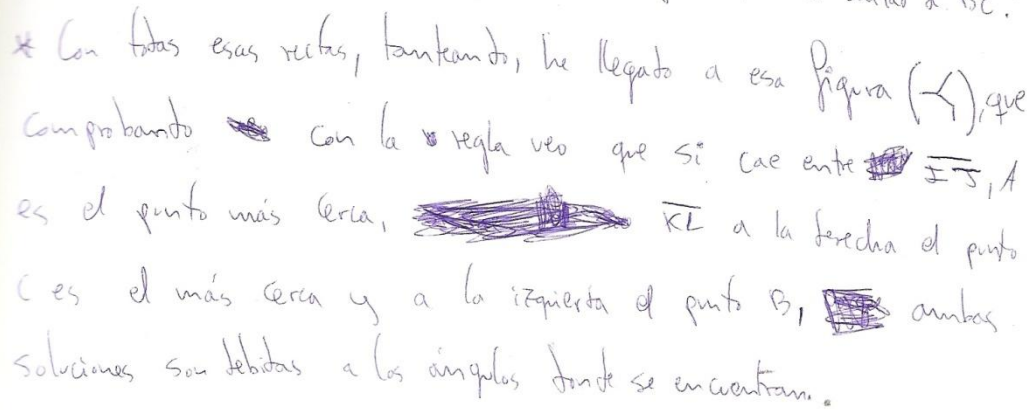 a BC.
* Con todas esas rectas, tanteando, he llegado a esa figura (⤙), que
comprobando con la regla veo que si cae entre IJ, A
es el punto más cerca, KL a la derecha el punto
C es el más cerca y a la izquierda el punto B, ambas
soluciones son debidas a los ángulos donde se encuentran.